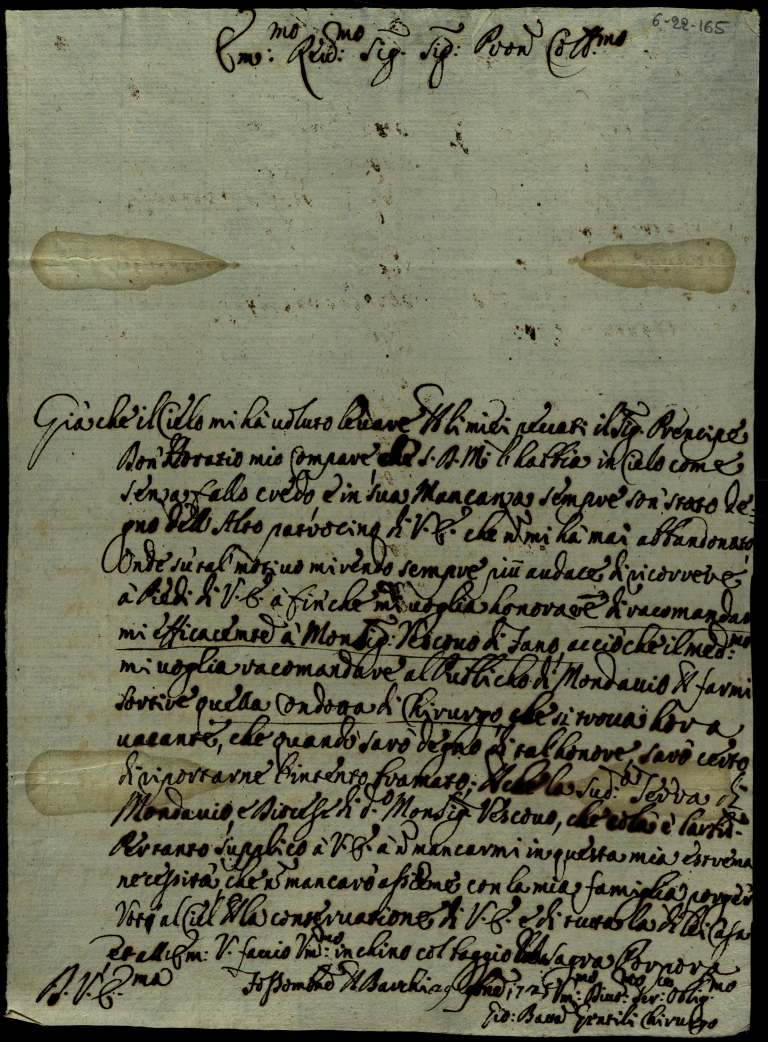 6-22-165
Em:mo Reud:mo Sig. Sig: Pron Coll:mo
Già che il Cielo mi hà uoluto leuare li miei peccati il Sig. Prencipe
Don Horatio mio Compare che S. D. M. l'habbia in Cielo come
senza fallo credo e in sua Mancanza sempre son stato de-
gno dell'Alto patrocinio di V. E. che ñ mi hà mai abbandonato
Onde sù tal motiuo mi rendo sempre più audace di ricorrere
à Piedi di V. E. à finche mi uoglia honorare di racomandar
mi efficacemte à Monsig. Vescouo di Fano, acciò che il med:mo
mi uoglia racomandare al Publicho di Mondauio farmi
sortire quella Condotta di Chirurgo che si troua hora
uacante, che quando sarò degno di tal honore, sarò certo
di riportarne l'intento bramato; che la Sud:a Terra di
Mondauio, e Diocese di d.o Monsig. Vescouo, che
Pertanto supplico à V. E. à ñ mancarmi in questa mia estrema
necessità, che ñ mancarò assieme con la mia famiglia porger
Voti al Ciel la conseruatione di V. E. e di tutta la di lei Casa
et all'Em: V. faccio Vm:mo inchino col baggio della Sagra Porpora
D. V. E.ma Fossombrone 1725 Vm:mo Diuot:mo Ser: Oblig:mo
Gio: Batta Gentili Chirurgo